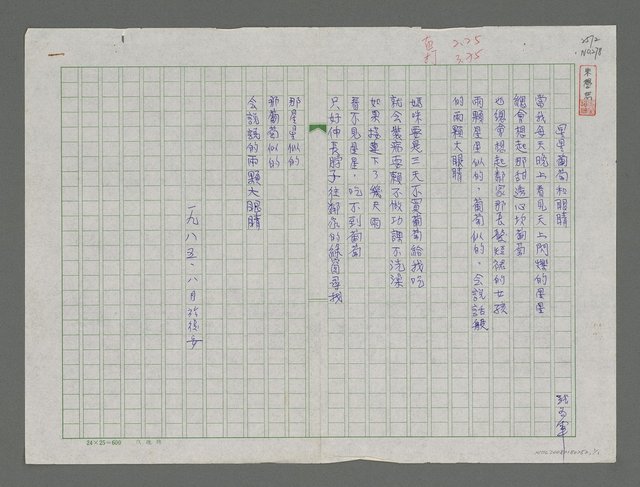 直 2.25
打 3.75
2572
NO278
星星葡萄和眼睛
當我每天晚上看見天上閃爍的星星
總會想起那甜透心坎葡萄
也總會想起鄰家那長髮短裙的女孩
兩顆星星似的，葡萄似的，会説話般
的兩顆大眼睛
媽咪要是三天不買葡萄給我吃
就会裝病耍賴不做功課不洗澡
如果接連下了幾天雨
看不見星星，吃不到葡萄
只好伸長脖子往鄰家的綠窗尋找
那星星似的
那葡萄似的
会説話的兩顆大眼睛
一九八五．八月
24×25=600